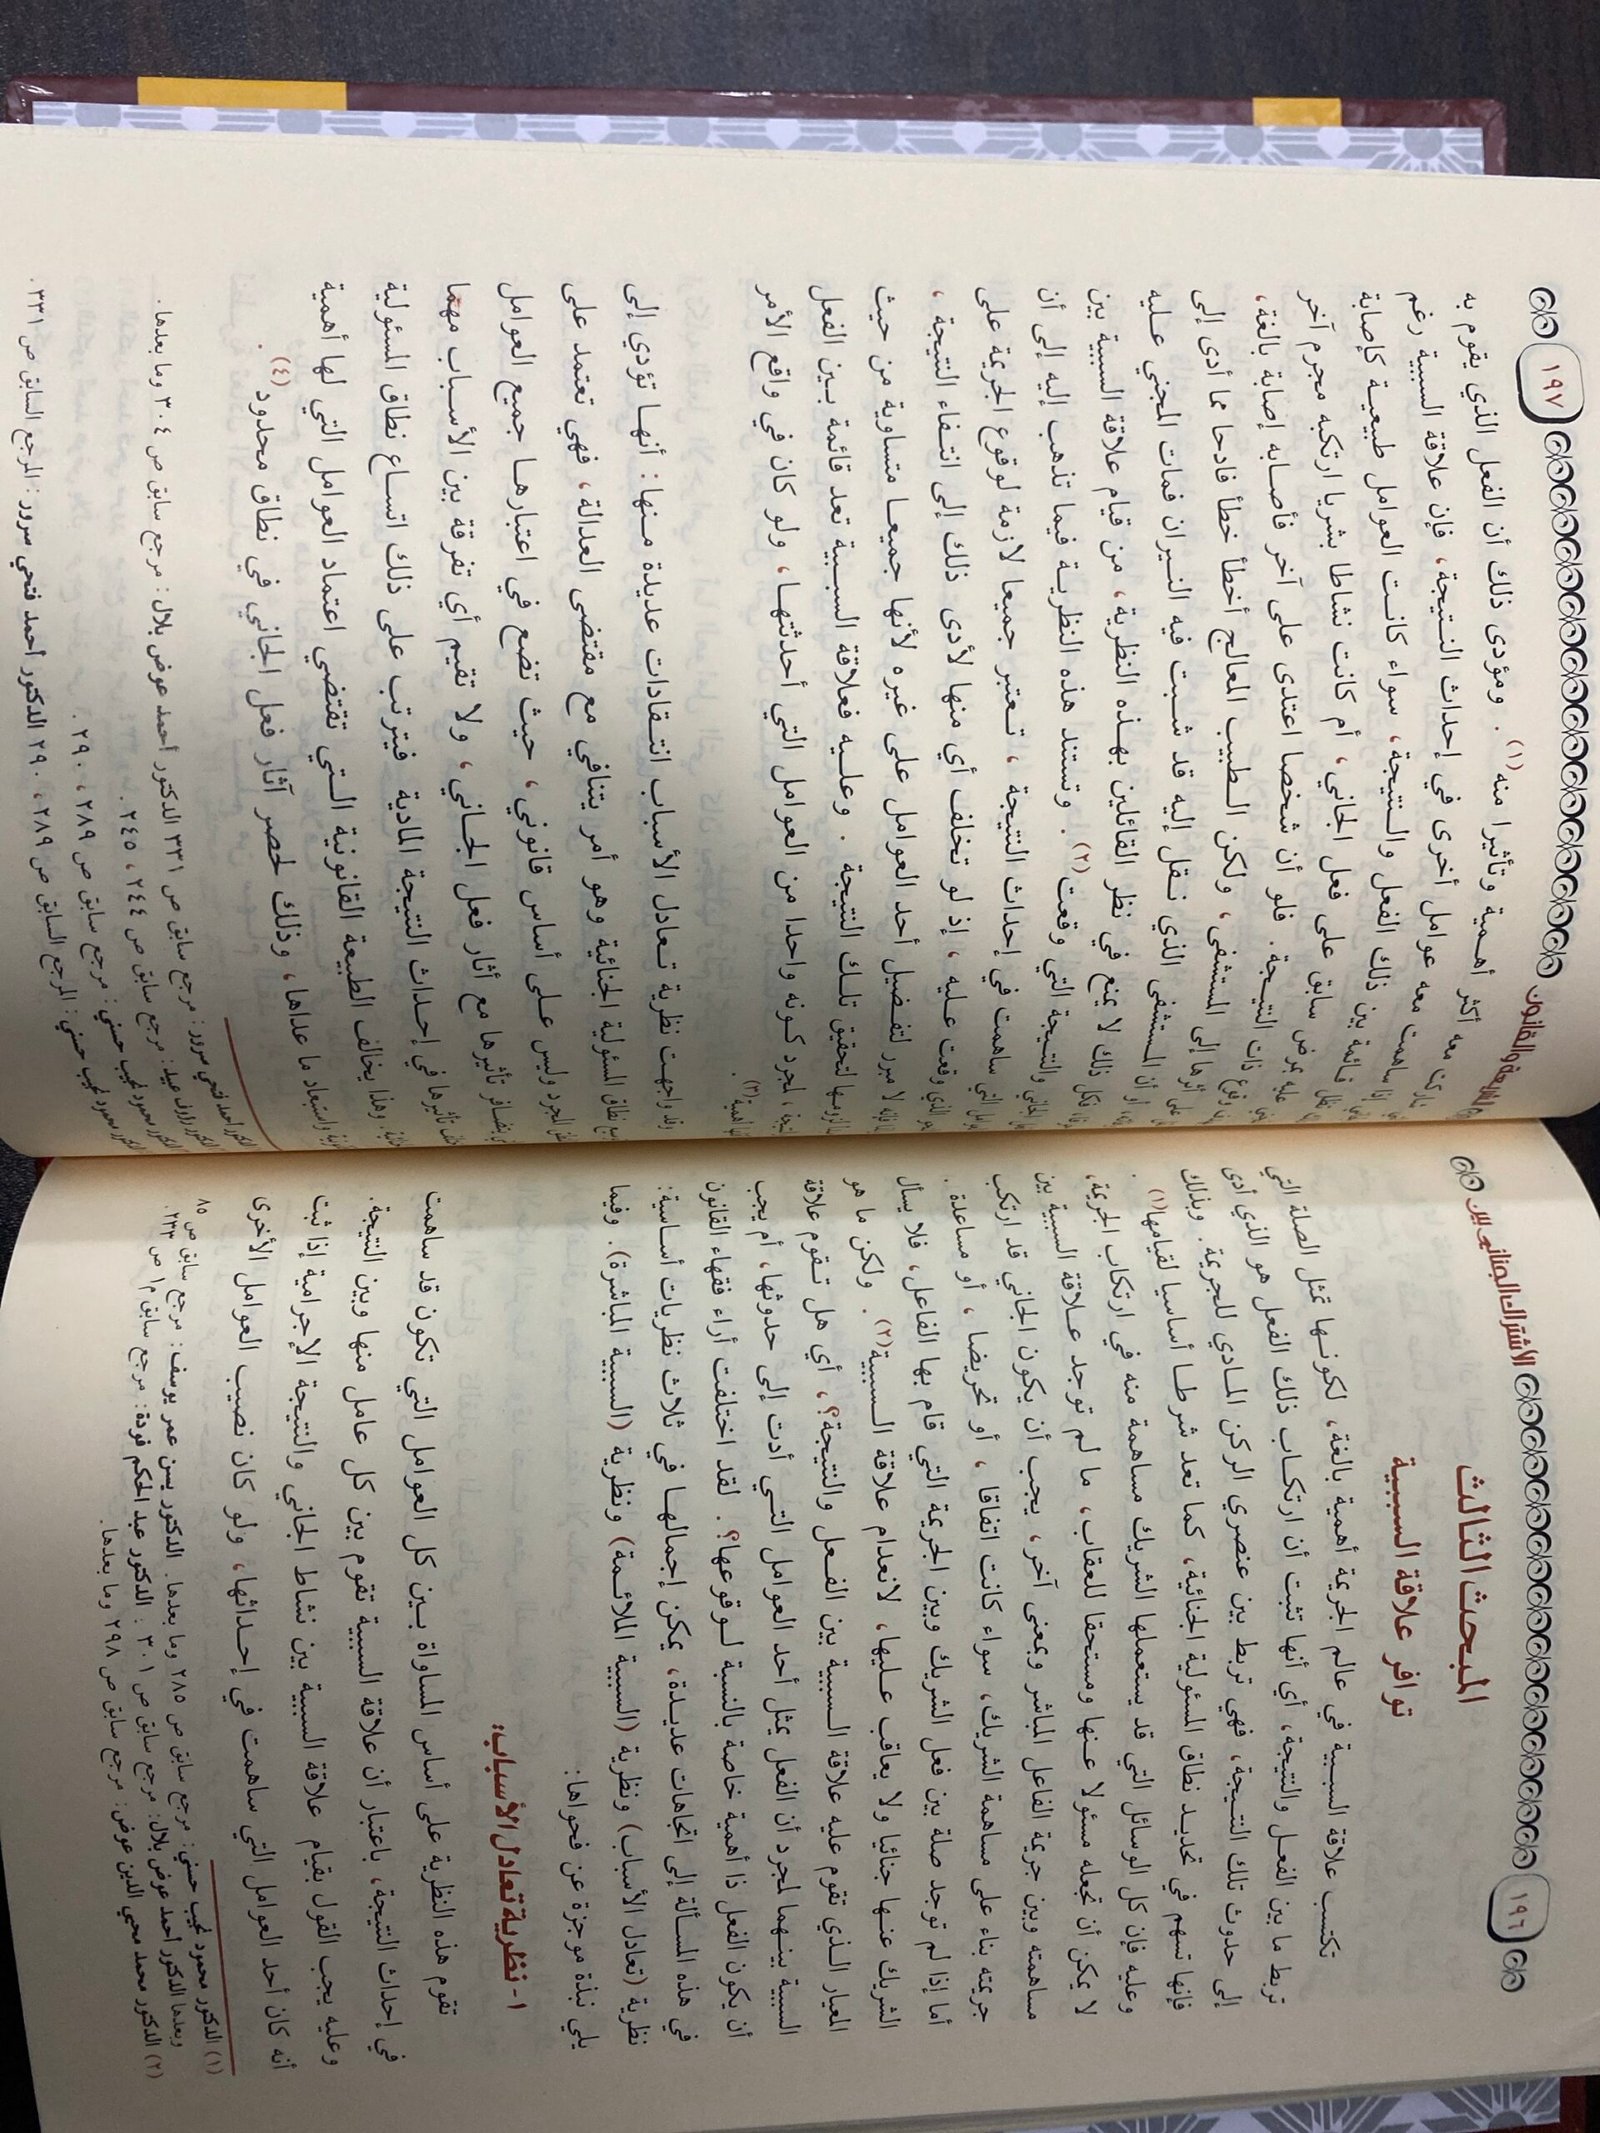 ١٩٦
الأشتراك الجنائي بين
المبحث الثالث
توافر علاقة السببية
تكتسب علاقة السببية في عالم الجريمة أهمية بالغة، لكونها تمثل الصلة التي
تربط ما بين الفعل والنتيجة، أي أنها تثبت أن ارتكاب ذلك الفعل هو الذي أدى
إلى حدوث تلك النتيجة، فهي تربط بين عنصري الركن المادي للجريمة. وبذلك
فإنها تسهم في تحديد نطاق المسئولية الجنائية، كما تعد شرطا أساسيا لقيامها(١) .
وعليه فإن كل الوسائل التي قد يستعملها الشريك مساهمة منه في ارتكاب الجريمة،
لا يمكن أن تجعله مسئولا عنها ومستحقا للعقاب، ما لم توجد علاقة السببية بين
مساهمته وبين جريمة الفاعل المباشر وبمعنى آخر، يجب أن يكون الجاني قد ارتكب
جريمته بناء على مساهمة الشريك، سواء كانت اتفاقا ، أو تحريضا ، أو مساعدة .
أما إذا لم توجد صلة بين فعل الشريك وبين الجريمة التي قام بها الفاعل، فلا يسأل
الشريك عنها جنائيا ولا يعاقب عليها، لانعدام علاقة السببية(٢) . ولكن ما هو
المعيار الذي تقوم عليه علاقة السببية بين الفعل والنتيجة؟، أي هل تقوم علاقة
السببية بينهما لمجرد أن الفعل يمثل أحد العوامل التي أدت إلى حدوثها، أم يجب
أن يكون الفعل ذا أهمية خاصة بالنسبة لوقوعها؟. لقد اختلفت أراء فقهاء القانون
في هذه المسألة إلى اتجاهات عديدة، يمكن إجمالها في ثلاث نظريات أساسية:
نظرية (تعادل الأسباب) ونظرية (السببية الملائمة) ونظرية (السببية المباشرة). وفيما
يلي نبذة موجزة عن فحواها:
١- نظرية تعادل الأسباب:
تقوم هذه النظرية على أساس المساواة بين كل العوامل التي تكون قد ساهمت
في إحداث النتيجة، باعتبار أن علاقة السببية تقوم بين كل عامل منها وبين النتيجة.
وعليه يجب القول بقيام علاقة السببية بين نشاط الجاني والنتيجة الإجرامية إذا ثبت
أنه كان أحد العوامل التي ساهمت في إحداثها، ولو كان نصيب العوامل الأخرى
(١) الدكتور محمود نجيب حسني: مرجع سابق ص ٢٨٥ وما بعدها. الدكتور يسن عمر يوسف: مرجع سابق ص ٨٥
وبعدها الدكتور أحمد عوض بلال: مرجع سابق ص ٣٠١ : الدكتور عبد الحكم فودة: مرجع سابق م١ ص ٢٣٣.
(٢) الدكتور محمد محيي الدين عوض: مرجع سابق ص ٢٩٨ وما بعدها.
الشريعة والقانون
١٩٧
معه أكثر أهمية وتأثيرا منه(١) . ومؤدى ذلك أن الفعل الذي يقوم به
ساهمت معه عوامل أخرى في إحداث النتيجة، فإن علاقة السببية رغم
قائمة بين ذلك الفعل والنتيجة، سواء كانت العوامل طبيعية كإصابة
عليه بمرض سابق على فعل الجاني، أم كانت نشاطا بشريا ارتكبه مجرم آخر
وقوع ذات النتيجة. فلو أن شخصا اعتدى على آخر فأصابه إصابة بالغة،
على أثرها إلى المستشفى، ولكن الطبيب المعالج أخطأ خطأ فادحا مما أدى إلى
أو أن المستشفى الذي نقل إليه قد شبت فيه النيران فمات المجني عليه
فكل ذلك لا يمنع في نظر القائلين بهذه النظرية، من قيام علاقة السببية بين
الجاني والنتيجة التي وقعت(٢) . وتستند هذه النظرية فيما تذهب إليه إلى أن
التي ساهمت في إحداث النتيجة ، تعتبر جميعا لازمة لوقوع الجريمة على
الذي وقعت عليه ، إذ لو تخلف أي منها لأدى ذلك إلى انتفاء النتيجة ،
فإنه لا مبرر لتفضيل أحد العوامل على غيره لأنها جميعا متساوية من حيث
لزومها لتحقيق تلك النتيجة . وعليه فعلاقة السببية تعد قائمة بين الفعل
لمجرد كونه واحدا من العوامل التي أحدثتها، ولو كان في واقع الأمر
أهمية(٣) .
وقد واجهت نظرية تعادل الأسباب انتقادات عديدة منها: أنها تؤدي إلى
نطاق المسئولية الجنائية وهو أمر يتنافي مع مقتضى العدالة، فهي تعتمد على
المجرد وليس على أساس قانوني ، حيث تضع في اعتبارها جميع العوامل
تتضافر تأثيرها مع أثار فعل الجاني ، ولا تقيم أي تفرقة بين الأسباب مهما
تأثيرها في إحداث النتيجة المادية فيترتب على ذلك اتساع نطاق المسئولية
وهذا يخالف الطبيعة القانونية التي تقتضي اعتماد العوامل التي لها أهمية
واستبعاد ما عداها، وذلك لحصر آثار فعل الجاني في نطاق محدود(٤) .
الدكتور أحمد فتحي سرور: مرجع سابق ص ٣٣١ الدكتور أحمد عوض بلال: مرجع سابق ص ٣٠٤ وما بعدها.
الدكتور رؤوف عبيد: مرجع سابق ص ٢٤٤ ، ٢٤٥ .
الدكتور محمود نجيب حسني: مرجع سابق ص ٢٨٩ ، ٢٩٠ .
الدكتور محمود نجيب حسني: المرجع السابق ص ٢٨٩ ، ٢٩٠ الدكتور أحمد فتحي سرور: المرجع السابق ص ٣٣١ .